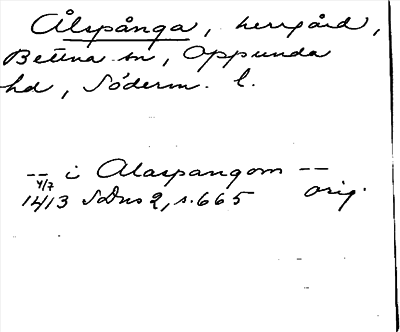 Ålspånga, herrgård,
Bettna sn, Oppunda
hd, Söderm. l.
-- i Alaspangom --
4/7 orig.
1413 SDns 2, s. 665